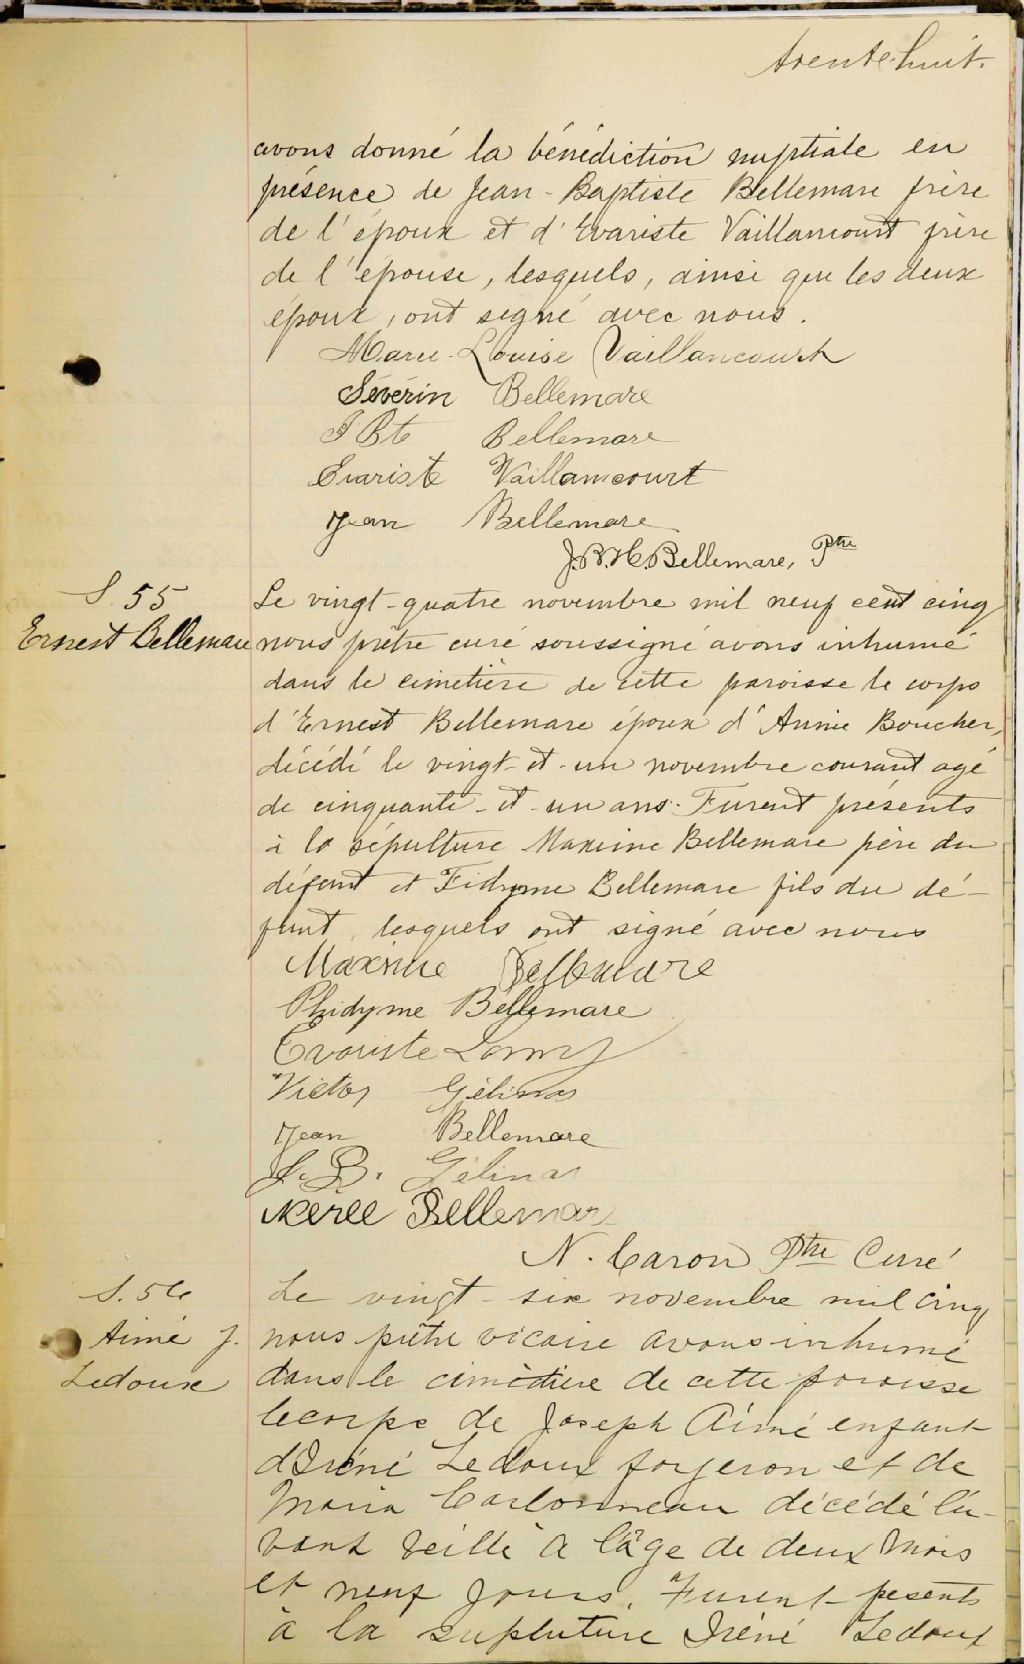 trente-huit.
avons donné la bénédiction nuptiale en
présence de Jean-Baptiste Bellemare frère
de l'époux et d'Evariste Vaillancourt frère
de l'épouse, lesquels, ainsi que les deux
époux, ont signé avec nous.
Marie-Louise Vaillancourt
Sévérin Bellemare
J Bte Bellemare
Evariste Vaillancourt
Jean Bellemare
J.B.H. Bellemare, Ptre
S. 55
Ernest Bellemare
Le vingt-quatre novembre mil neuf cent cinq
nous prêtre curé soussigné avons inhumé
dans le cimetière de cette paroisse le corps
d'Ernest Bellemare époux d'Annie Boucher,
décédé le vingt-et-un novembre courant agé
de cinquante-et-un ans. Furent présents
à la sépulture Maxime Bellemare père du
défunt et Fidyme Bellemare fils du dé-
funt, lesquels ont signé avec nous
Maxime Bellemare
Phidyme Bellemare
Evariste Lamy
Victor Gélinas
Jean Bellemare
J. B. Gélinas
Nérée Bellemare
N. Caron Ptre Curé
S. 56
Aimé J.
Ledoux
Le vingt-six novembre mil cinq
nous prêtre vicaire avons inhumé
dans le cimètiere de cette paroisse
le corps de Joseph Aimé enfant
d'Iréné Ledoux forgeron et de
Maria Carbonneau décédé l'a-
vant veille à l'âge de deux mois
et neuf jours. Furent pesents
à la supluture Iréné Ledoux